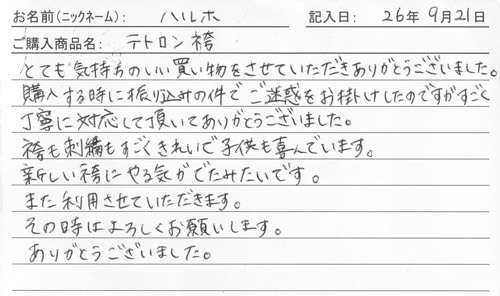 お名前(ニックネーム): ハルホ 記入日: 26年9月21日
ご購入商品名: テトロン袴
とても気持ちのいい買い物をさせていただきありがとうございました。
購入する時に振り込みの件でご迷惑をお掛けしたのですがすごく
丁寧に対応して頂いてありがとうございました。
袴も刺繍もすごくきれいで子供も喜んでいます。
新しい袴にやる気がでたみたいです。
また利用させていただきます。
その時はよろしくお願いします。
ありがとうございました。